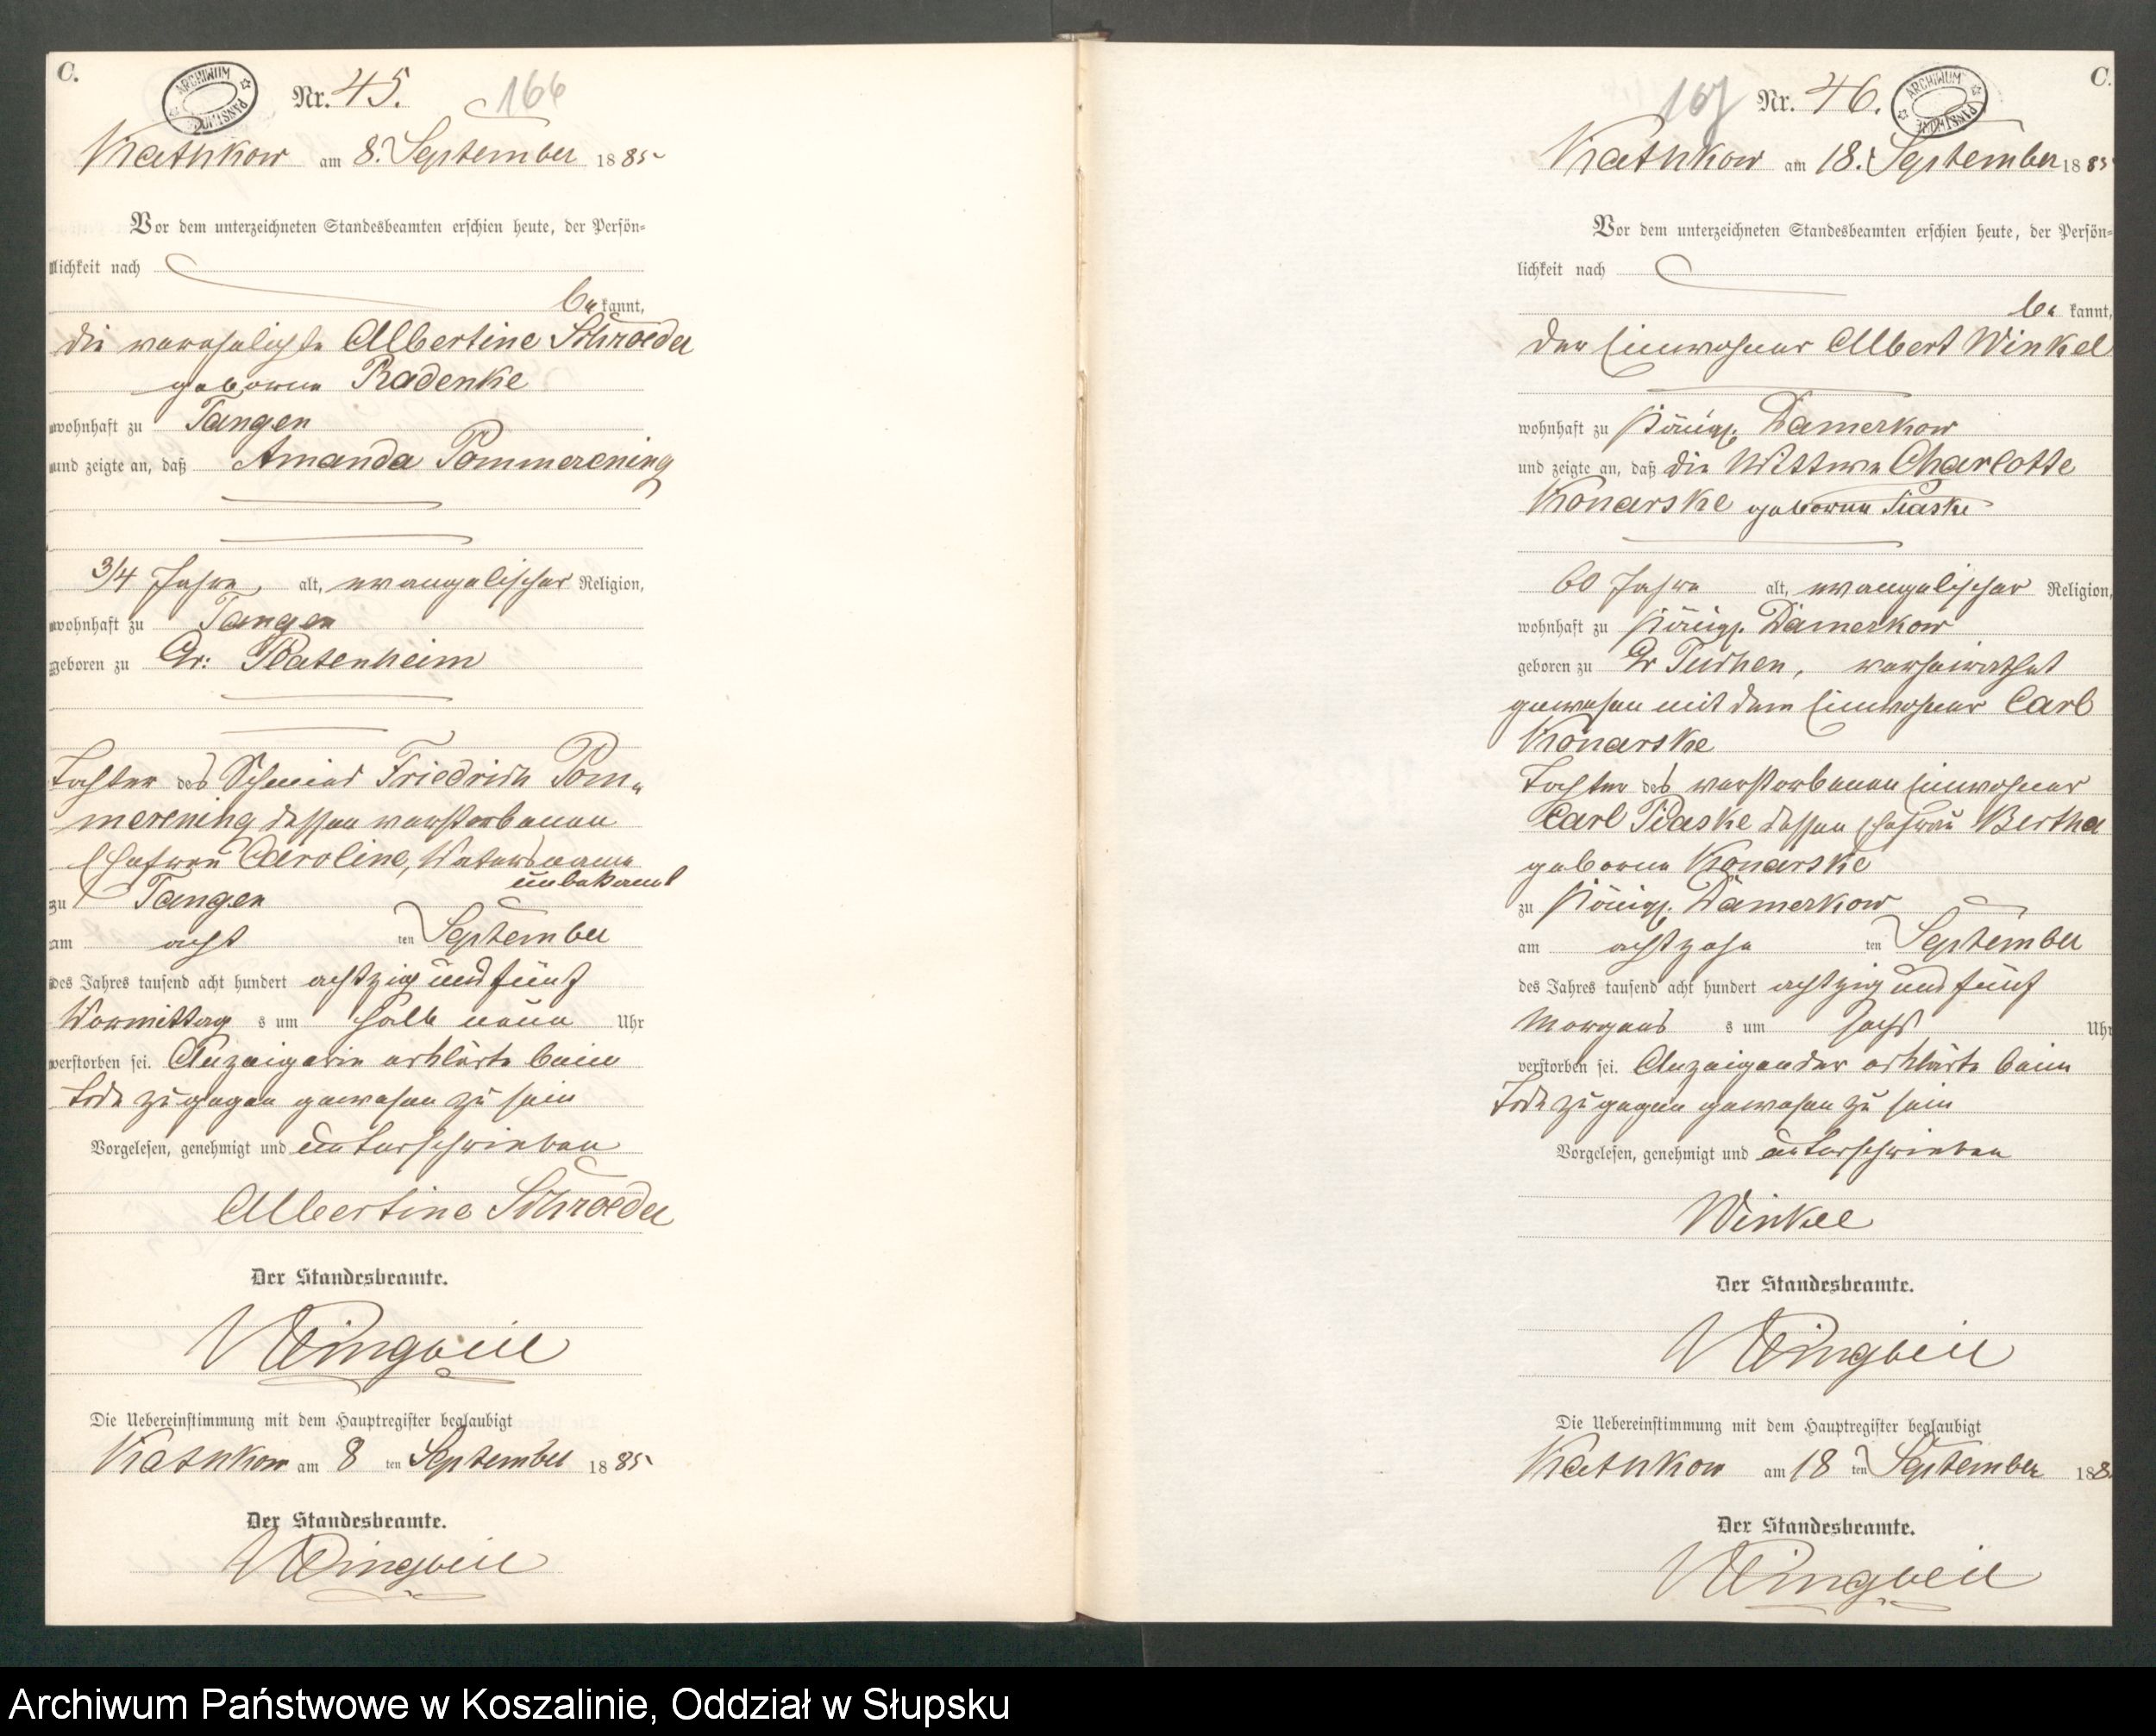 C.
ARCHIWUM PAŃSTWOWE
Nr. 45.
166
Kathkow am 8. September 1885
Vor dem unterzeichneten Standesbeamten erschien heute, der Persön=
lichkeit nach
be kannt,
die verehelichte Albertine Schroeder
geborne Radenke
wohnhaft zu Tangen
und zeigte an, daß Amanda Pommerening
3/4 Jahre, alt, evangelischer Religion,
wohnhaft zu Tangen
geboren zu Gr: Platenheim
Tochter des Schmied Friedrich Pom„
merening dessen verstorbenen
Ehefrau Caroline, Vatersname
unbekannt
zu Tangen
am acht ten September
des Jahres tausend acht hundert achtzig und fünf
Vormittag s um halb neun Uhr
verstorben sei. Anzeigerin erklärte beim
Tode zugegen gewesen zu sein
Vorgelesen, genehmigt und unterschrieben
Albertine Schroeder
Der Standesbeamte.
Die Uebereinstimmung mit dem Hauptregister beglaubigt
Kathkow am 8 ten September 1885
Der Standesbeamte.
C.
167
Nr. 46.
ARCHIWUM PAŃSTWOWE
Kathkow am 18. September 1885
Vor dem unterzeichneten Standesbeamten erschien heute, der Persön=
lichkeit nach
be kannt,
der Einwohner Albert Winkel
wohnhaft zu Königl. Damerkow
und zeigte an, daß die Wittwe Charlotte
Konarske geborne Piaske
60 Jahre alt, evangelischer Religion,
wohnhaft zu Königl. Damerkow
geboren zu Gr Tuchen, verheirathet
gewesen mit dem Einwohner Carl
Konarske
Tochter des verstorbenen Einwohner
Carl Piaske dessen Ehefrau Bertha
geborne Konarske
zu Königl. Damerkow
am achtzehn ten September
des Jahres tausend acht hundert achtzig und fünf
Morgens s um sechs Uhr
verstorben sei. Anzeigender erklärte beim
Tode zugegen gewesen zu sein
Vorgelesen, genehmigt und unterschrieben
Winkel
Der Standesbeamte.
Die Uebereinstimmung mit dem Hauptregister beglaubigt
Kathkow am 18 ten September 188
Der Standesbeamte.
Archiwum Państwowe w Koszalinie, Oddział w Słupsku